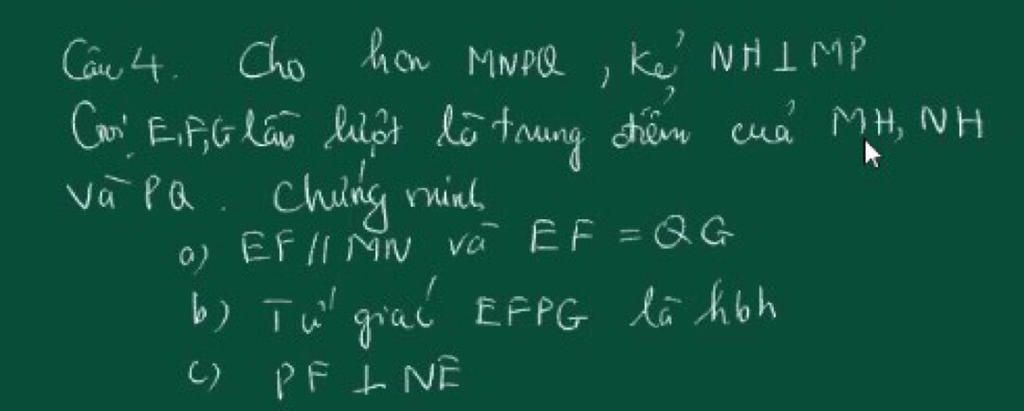 Câu 4. Cho hcn MNPQ, kẻ NH⊥MP
Gọi E,F,G lần lượt là trung điểm của MH, NH
và PQ. Chứng minh
a) EF // MN và EF = QG
b) Tứ giác EFPG là hbh
c) PF ⊥ NE